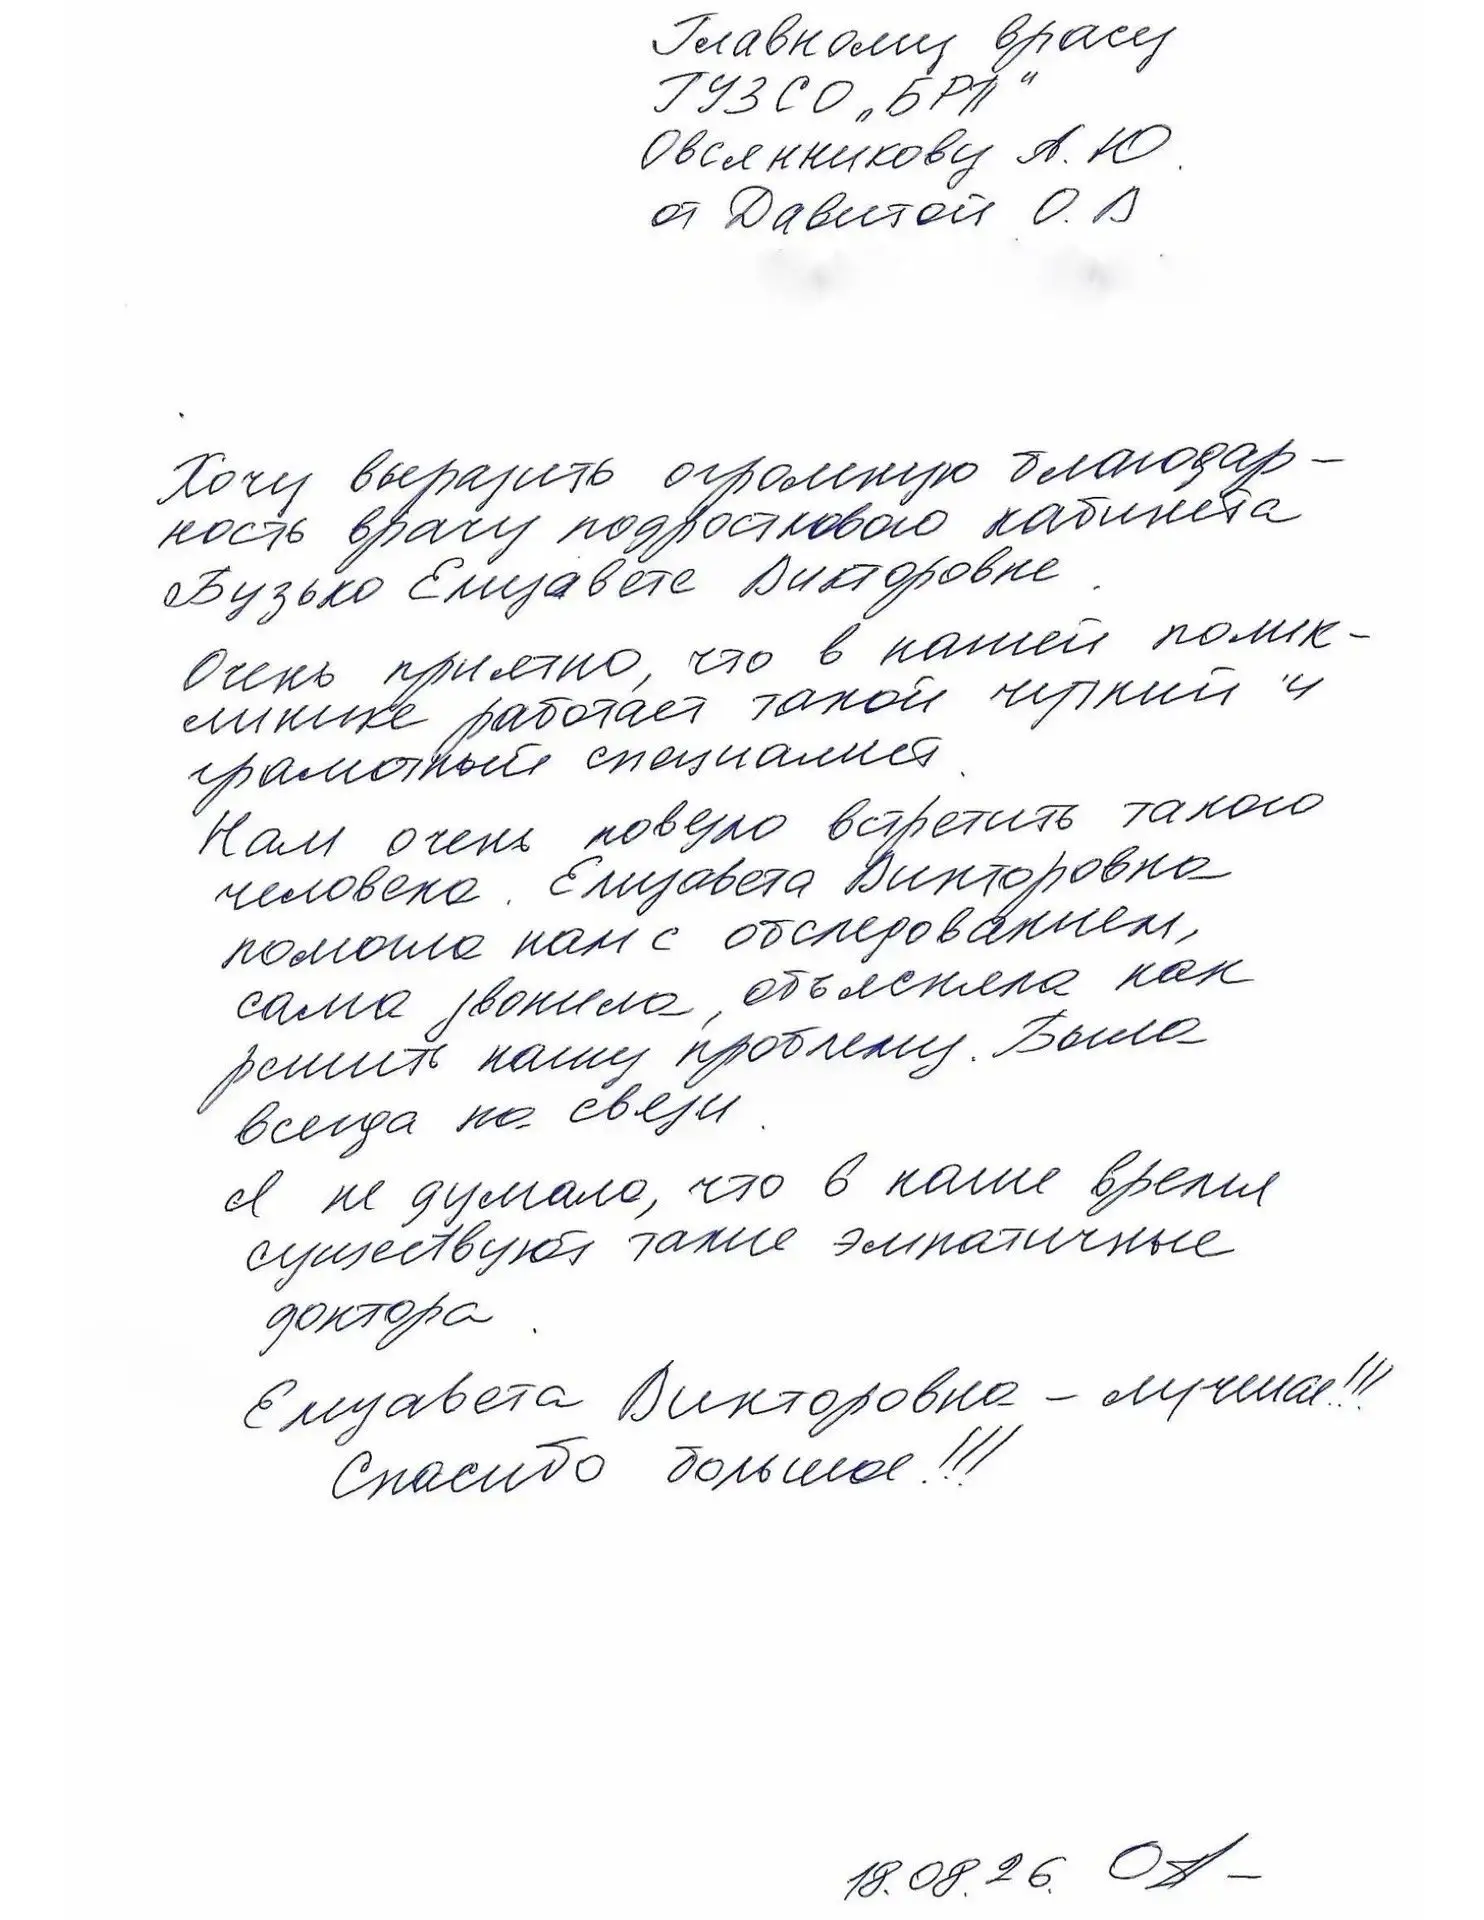 Главному врачу
ГУЗ СО „БРП“
Овсянникову А. Ю.
от Давитой О. В
Хочу выразить огромную благодар-
ность врачу подросткового кабинета
Бузько Елизавете Викторовне.
Очень приятно, что в нашей полик-
линике работает такой чуткий и
грамотный специалист.
Нам очень повезло встретить такого
человека. Елизавета Викторовна
помогла нам с обследованием,
сама звонила, объясняла как
решить нашу проблему. Была
всегда на связи.
Я не думала, что в наше время
существуют такие эмпатичные
доктора.
Елизавета Викторовна – лучшая!!!
Спасибо большое!!!
18.08.26.